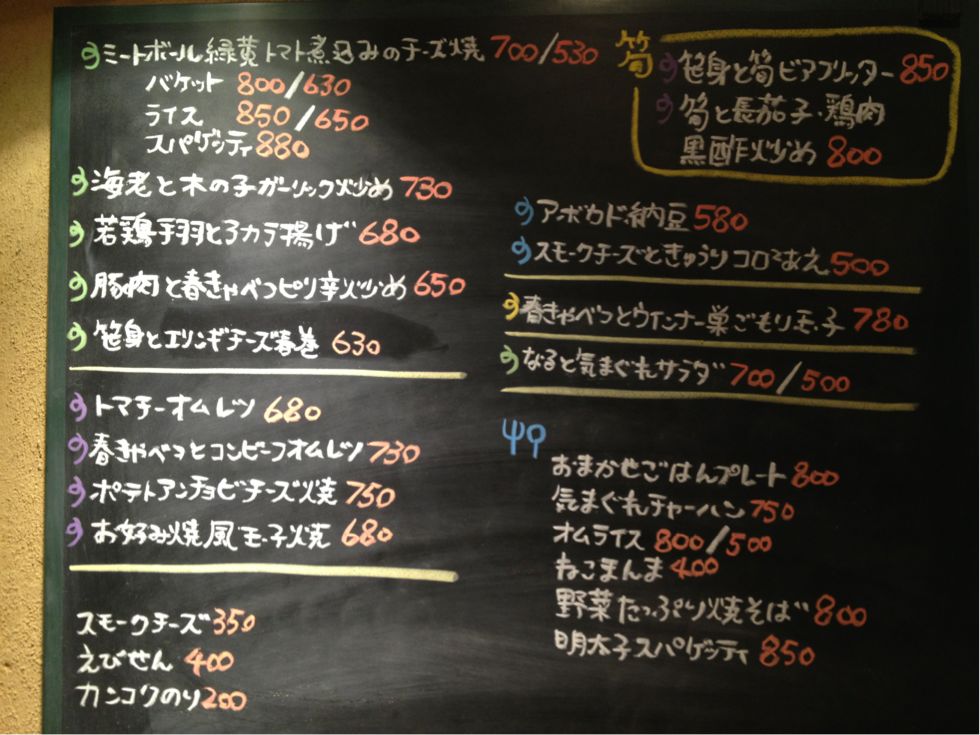 ミートボール緑黄トマト煮込みのチーズ焼 700/530
バケット 800/630
ライス 850/650
スパゲッティ 880
海老と木の子ガーリック炒め 730
若鶏手羽とろカラ揚げ 680
豚肉と春きゃべつピリ辛炒め 650
笹身とエリンギチーズ春巻 630
トマチーオムレツ 680
春きゃべつとコンビーフオムレツ 730
ポテトアンチョビチーズ焼 750
お好み焼風玉子焼 680
スモークチーズ 350
えびせん 400
カンコクのり 200
筍
笹身と筍ビアフリッター 850
筍と長茄子・鶏肉
黒酢炒め 800
アボカド納豆 580
スモークチーズときゅうりコロコロあえ 500
春きゃべつとウインナー巣ごもり玉子 780
なると気まぐれサラダ 700/500
おまかせごはんプレート 800
気まぐれチャーハン 750
オムライス 800/500
ねこまんま 400
野菜たっぷり焼そば 800
明太子スパゲッティ 850